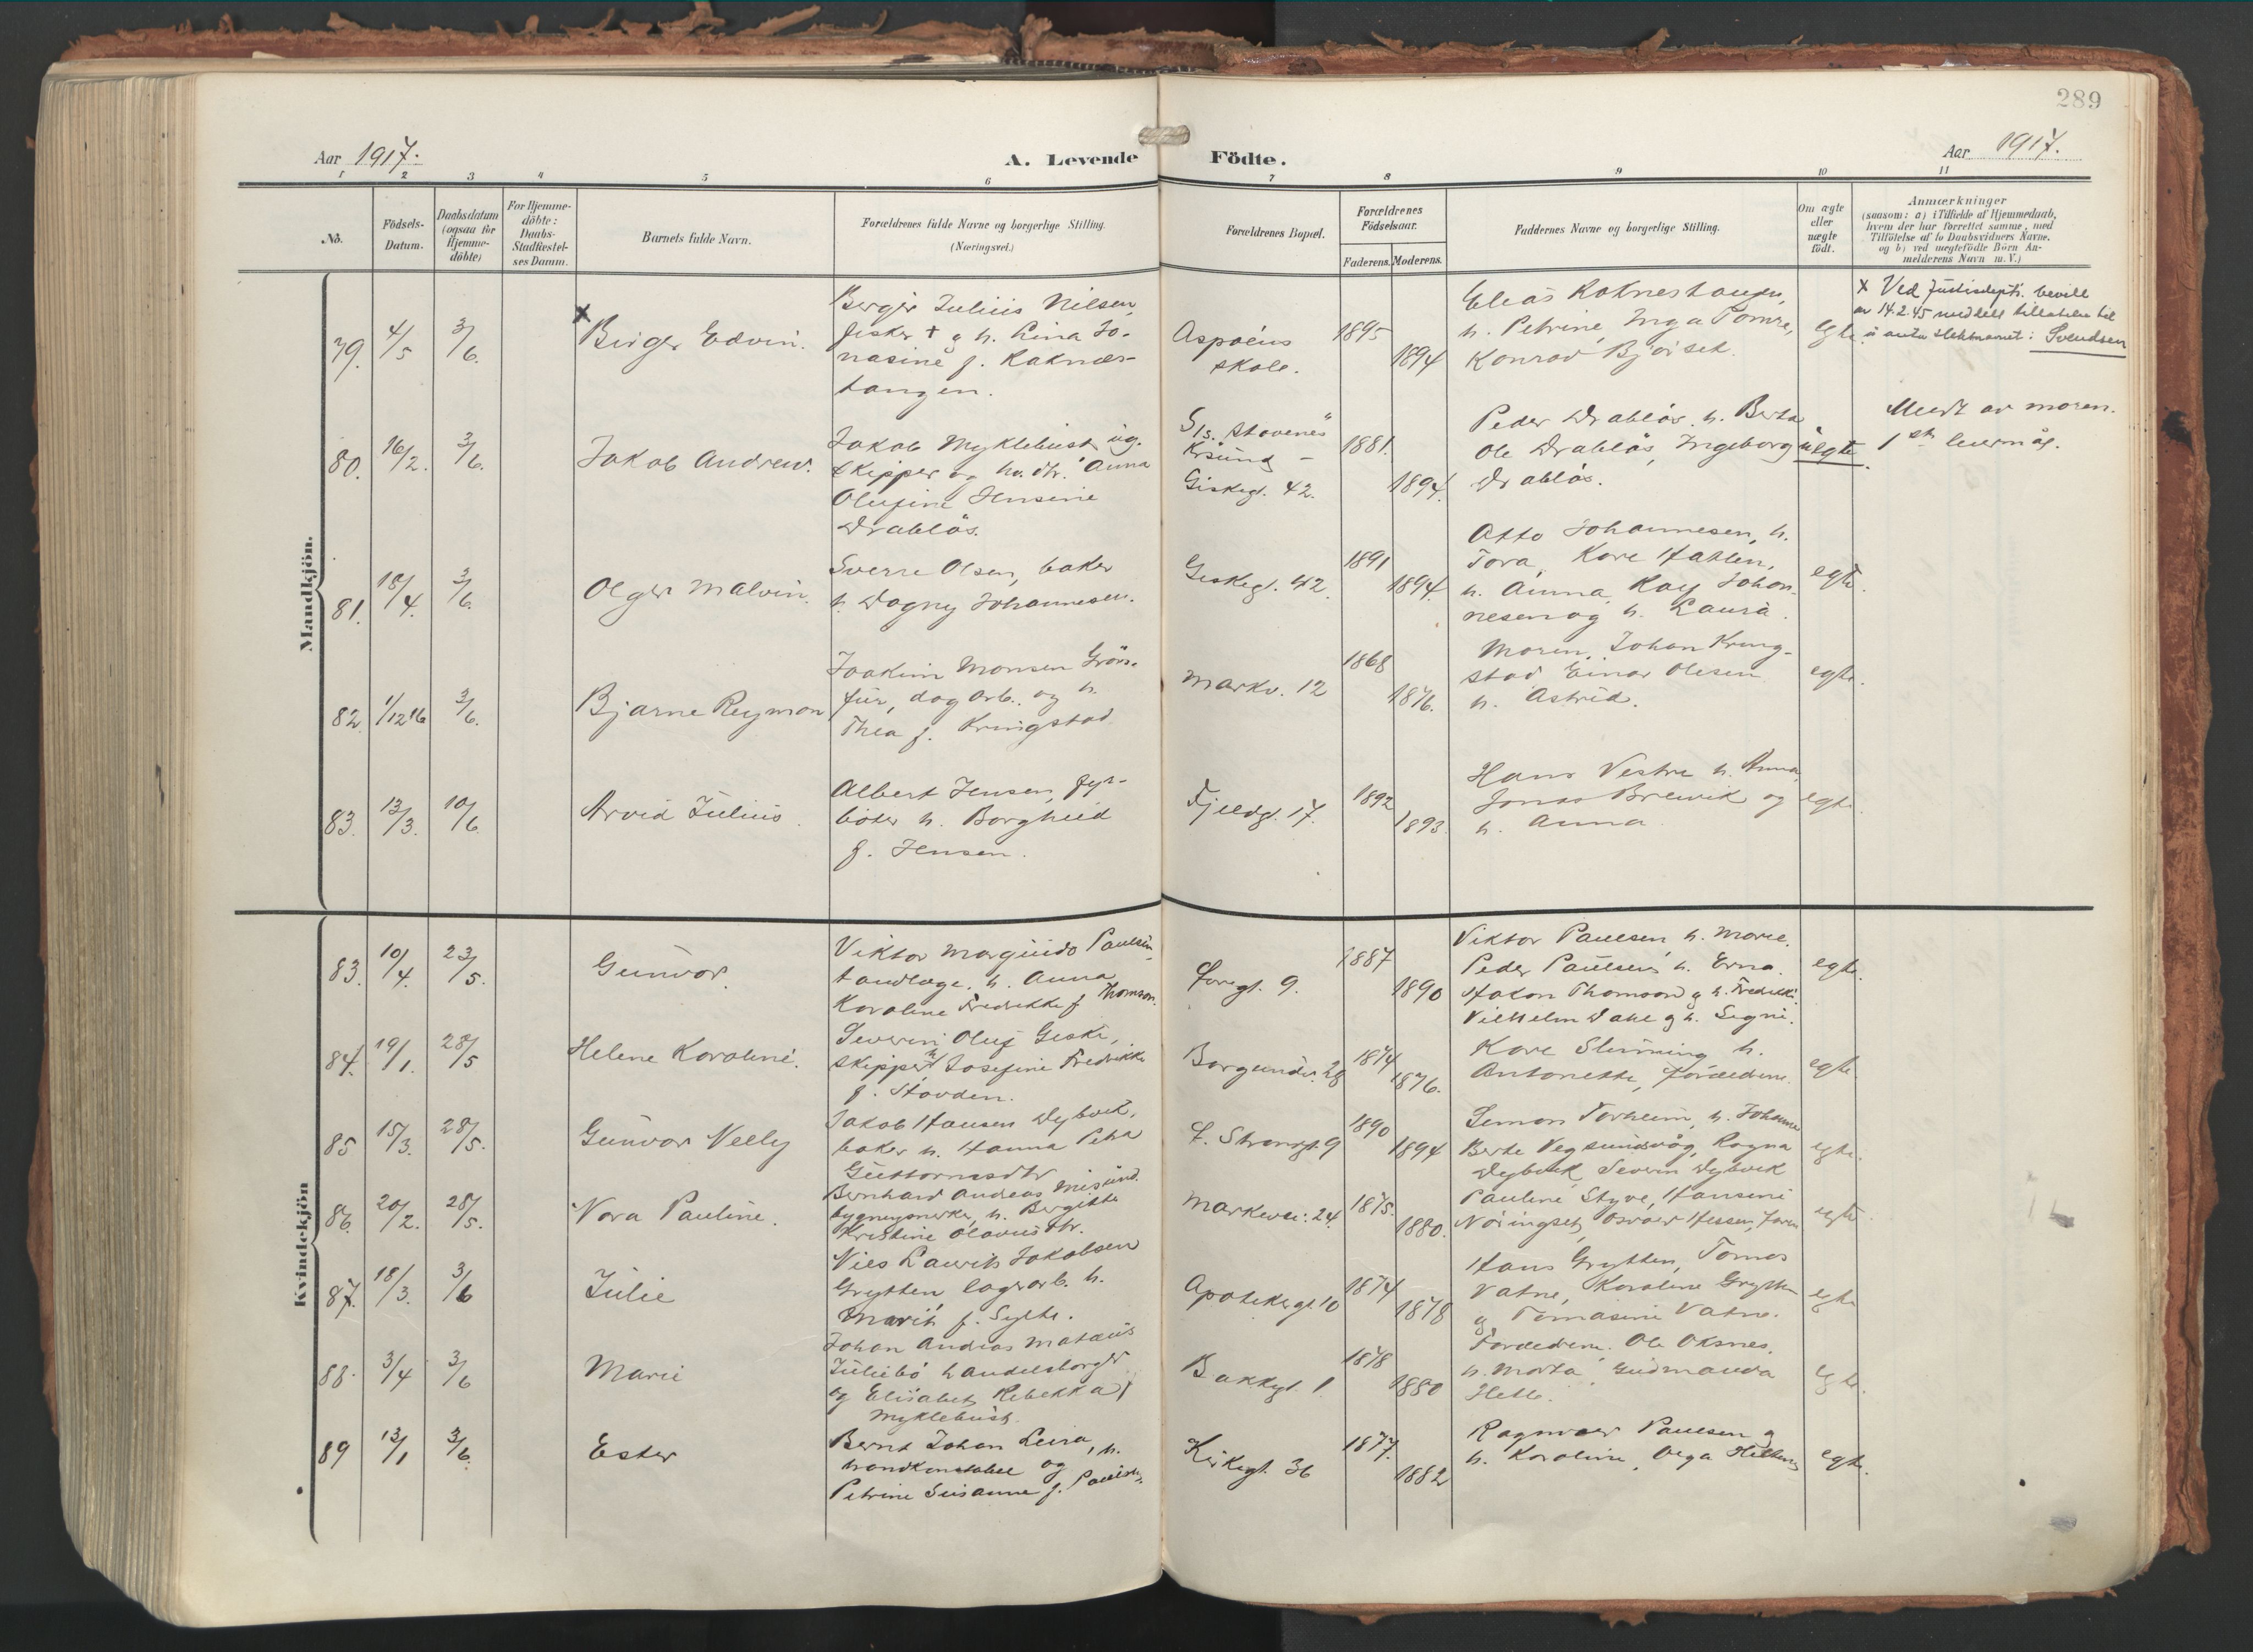 289
Aar 1917.
A. Levende Födte.
Aar 1917.
1 2 3 4 5 6 7 8 9 10 11
No.
Födsels-
Datum.
Daabsdatum
(ogsaa for
Hjemme-
döbte)
For Hjemme-
döbte:
Daabs-
Stadfæstel-
ses Datum.
Barnets fulde Navn.
Forældrenes fulde Navne og borgerlige Stilling.
(Næringsvei.)
Forældrenes Bopæl.
Forældrenes
Födselsaar.
Faderens. Moderens.
Faddernes Navne og borgerlige Stilling.
Om ægte
eller
uægte
födt.
Anmærkninger
(saasom: a) i Tilfælde af Hjemmedaab,
hvem der har forrettet samme, med
Tilföielse af to Daabsvidners Navne,
og b) ved uægtefödte Börn An-
melderens Navn m. V.)
Mandkjön.
79. 4/5 3/6. x Birger Edvin.
Julius Nilsen,
fisker + g h. Lina Jo-
nasine f. Raknes-
tangen.
Aspöens
skole.
1895
1894
Elias Raknestangen,
h. Petrine, Inga Tomre,
Konrad Björset.
egte.
x Ved Justisdept's. bevill
av 14.2.45 meddelt tillatelse til
å anta slektnavnet: Svendsen
80. 16/2. 3/6. Jakob Andreas.
Jakob Myklebust, ug.
skipper og Anna
Olufine Jensine
Drabløs.
Krsund –
Giskegt. 42.
1881.
1894.
Peder Drabløs, h. Berta
Ole Drabløs, Ingeborg
Drabløs.
uegte.
Meldt av moren.
1ste leiermål.
81. 18/4. 3/6. Olger Malvin.
Sverre Olsen, baker
h. Dagny Johannesen.
Giskegt. 42.
1891
1894.
Otto Johannesen, h.
Tora, Kare
h. Anna, Kay Johan-
nesen og h. Laura.
egte.
82. 1/12 16 3/6. Bjarne Reymon
Joakim Monsen Grön-
fur, dag arb. og h.
Thea f. Kringstad
Markv. 12
1868
1876.
Moren, Johan Kring-
stad Einar Olesen
h. Astrid.
egte.
83. 13/3. 10/6 Arvid Julius.
Albert Jensen, fyr-
böter h. Borghild
f. Jensen.
Fjeldgt. 17.
1892
1893.
Hans Vestre h. Anna,
Jonas Brevik og
h. Anna
egte.
Kvindekjön
83. 10/4. 23/5. Gunvor.
Viktor Paulsen,
tandlæge. h. Anna
Karoline Fredrikke f. Thomson.
9.
1887
1890
Viktor Paulsen, h. Marie.
Peder Paulsen, h. Erna.
Hakon Thomson g h. Fredrikke
Vilhelm Dahl g h. Signe.
egte.
84. 19/1. 28/5 Helene Karoline.
Severin Oluf Giske,
skipper h. Josefine Fredrikke
f. Stavden.
Borgundv. 28
1874
1876.
Kare Slinning h.
Antonette, forældrene.
egte.
85 15/3. 28/5. Gunvor Nelly
Jakob Hansen Dybvik,
baker h. Hanna Petra
Guttormsdtr
Strandgt. 9
1890
1894
Simon Torheim, h. Johanne
Berte Vegsundvåg, Ragna
Dybvik Severin Dybvik
egte.
86. 20/2. 28/5. Nora Pauline.
Bernhard Andreas Misund.
h. Bergitte
Kristine Olavusdtr.
Markvei: 24.
1875.
1880.
Pauline Styve, Hansine
Nöringset,
egte.
87. 18/3. 3/6 Julie
Nils Laurits Jakobsen
Grytten, lagerarb. h.
Marit f. Sylte.
Apotekergt. 10
1874
1878
Hans Grytten, Tomas
Vatne, Karoline Grytten
g Tomasine Vatne.
egte
88. 3/4 3/6 Marie
Johan Andreas Mataeus
Juliebö handelsborger
og Elisabet Rebekka f
Myklebust.
Bakkegt. 1.
1878
1880
Forældrene. Ole Oksnes,
h. Marta, Gudmanda
Helle.
egte.
89 13/1 3/6. Ester
Bernt Johan Leira,
brandkonstabel og h.
Petrine Susanne f. Paulsen.
Kirkegt. 36
1877.
1882
Ragnvald Paulsen g
h. Karoline, Olga
egte.